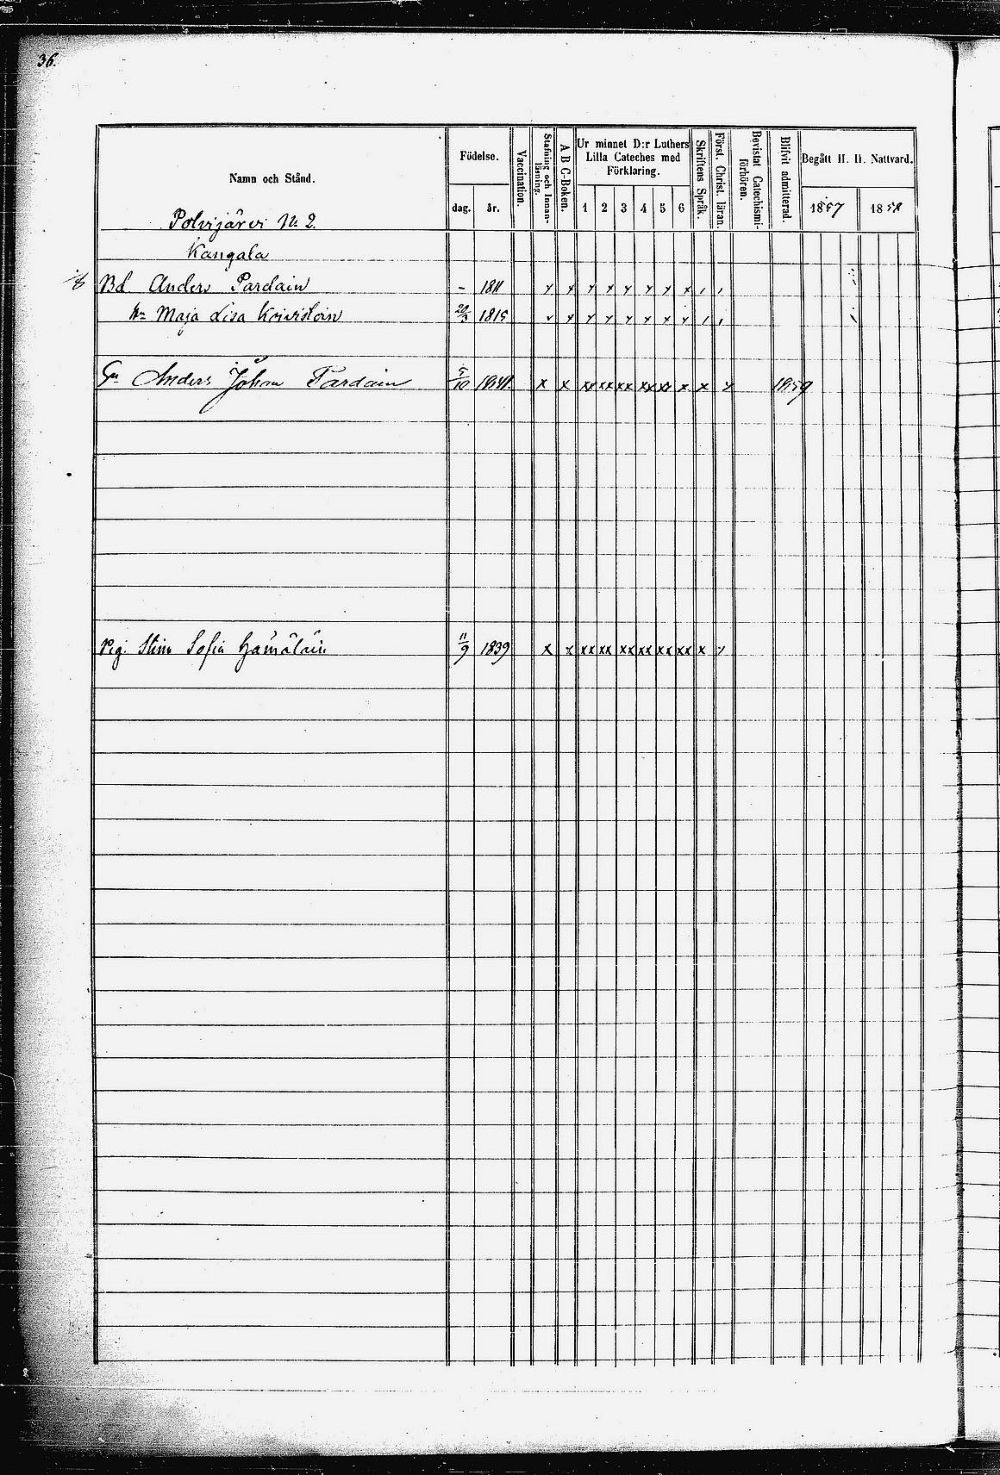 36.
Namn och Stånd. Födelse. dag. år. Vaccination. Stafning och Innanläsning. A B C-Boken. Ur minnet D:r Luthers Lilla Cateches med Förklaring. 1 2 3 4 5 6 Skriftens Språk. Först. Christ. läran. Bevistat Catechismiförhören. Blifvit admitterad. Begått H. H. Nattvard. 1857 1858
Polvijärvi N. 2.
Kangala
Bd. Anders Pardain - 1811
Maja Lisa 1815
Anders Johan Pardain 5/10 1859
Pig. Stina Sofia Hämäläin 11/9 1839